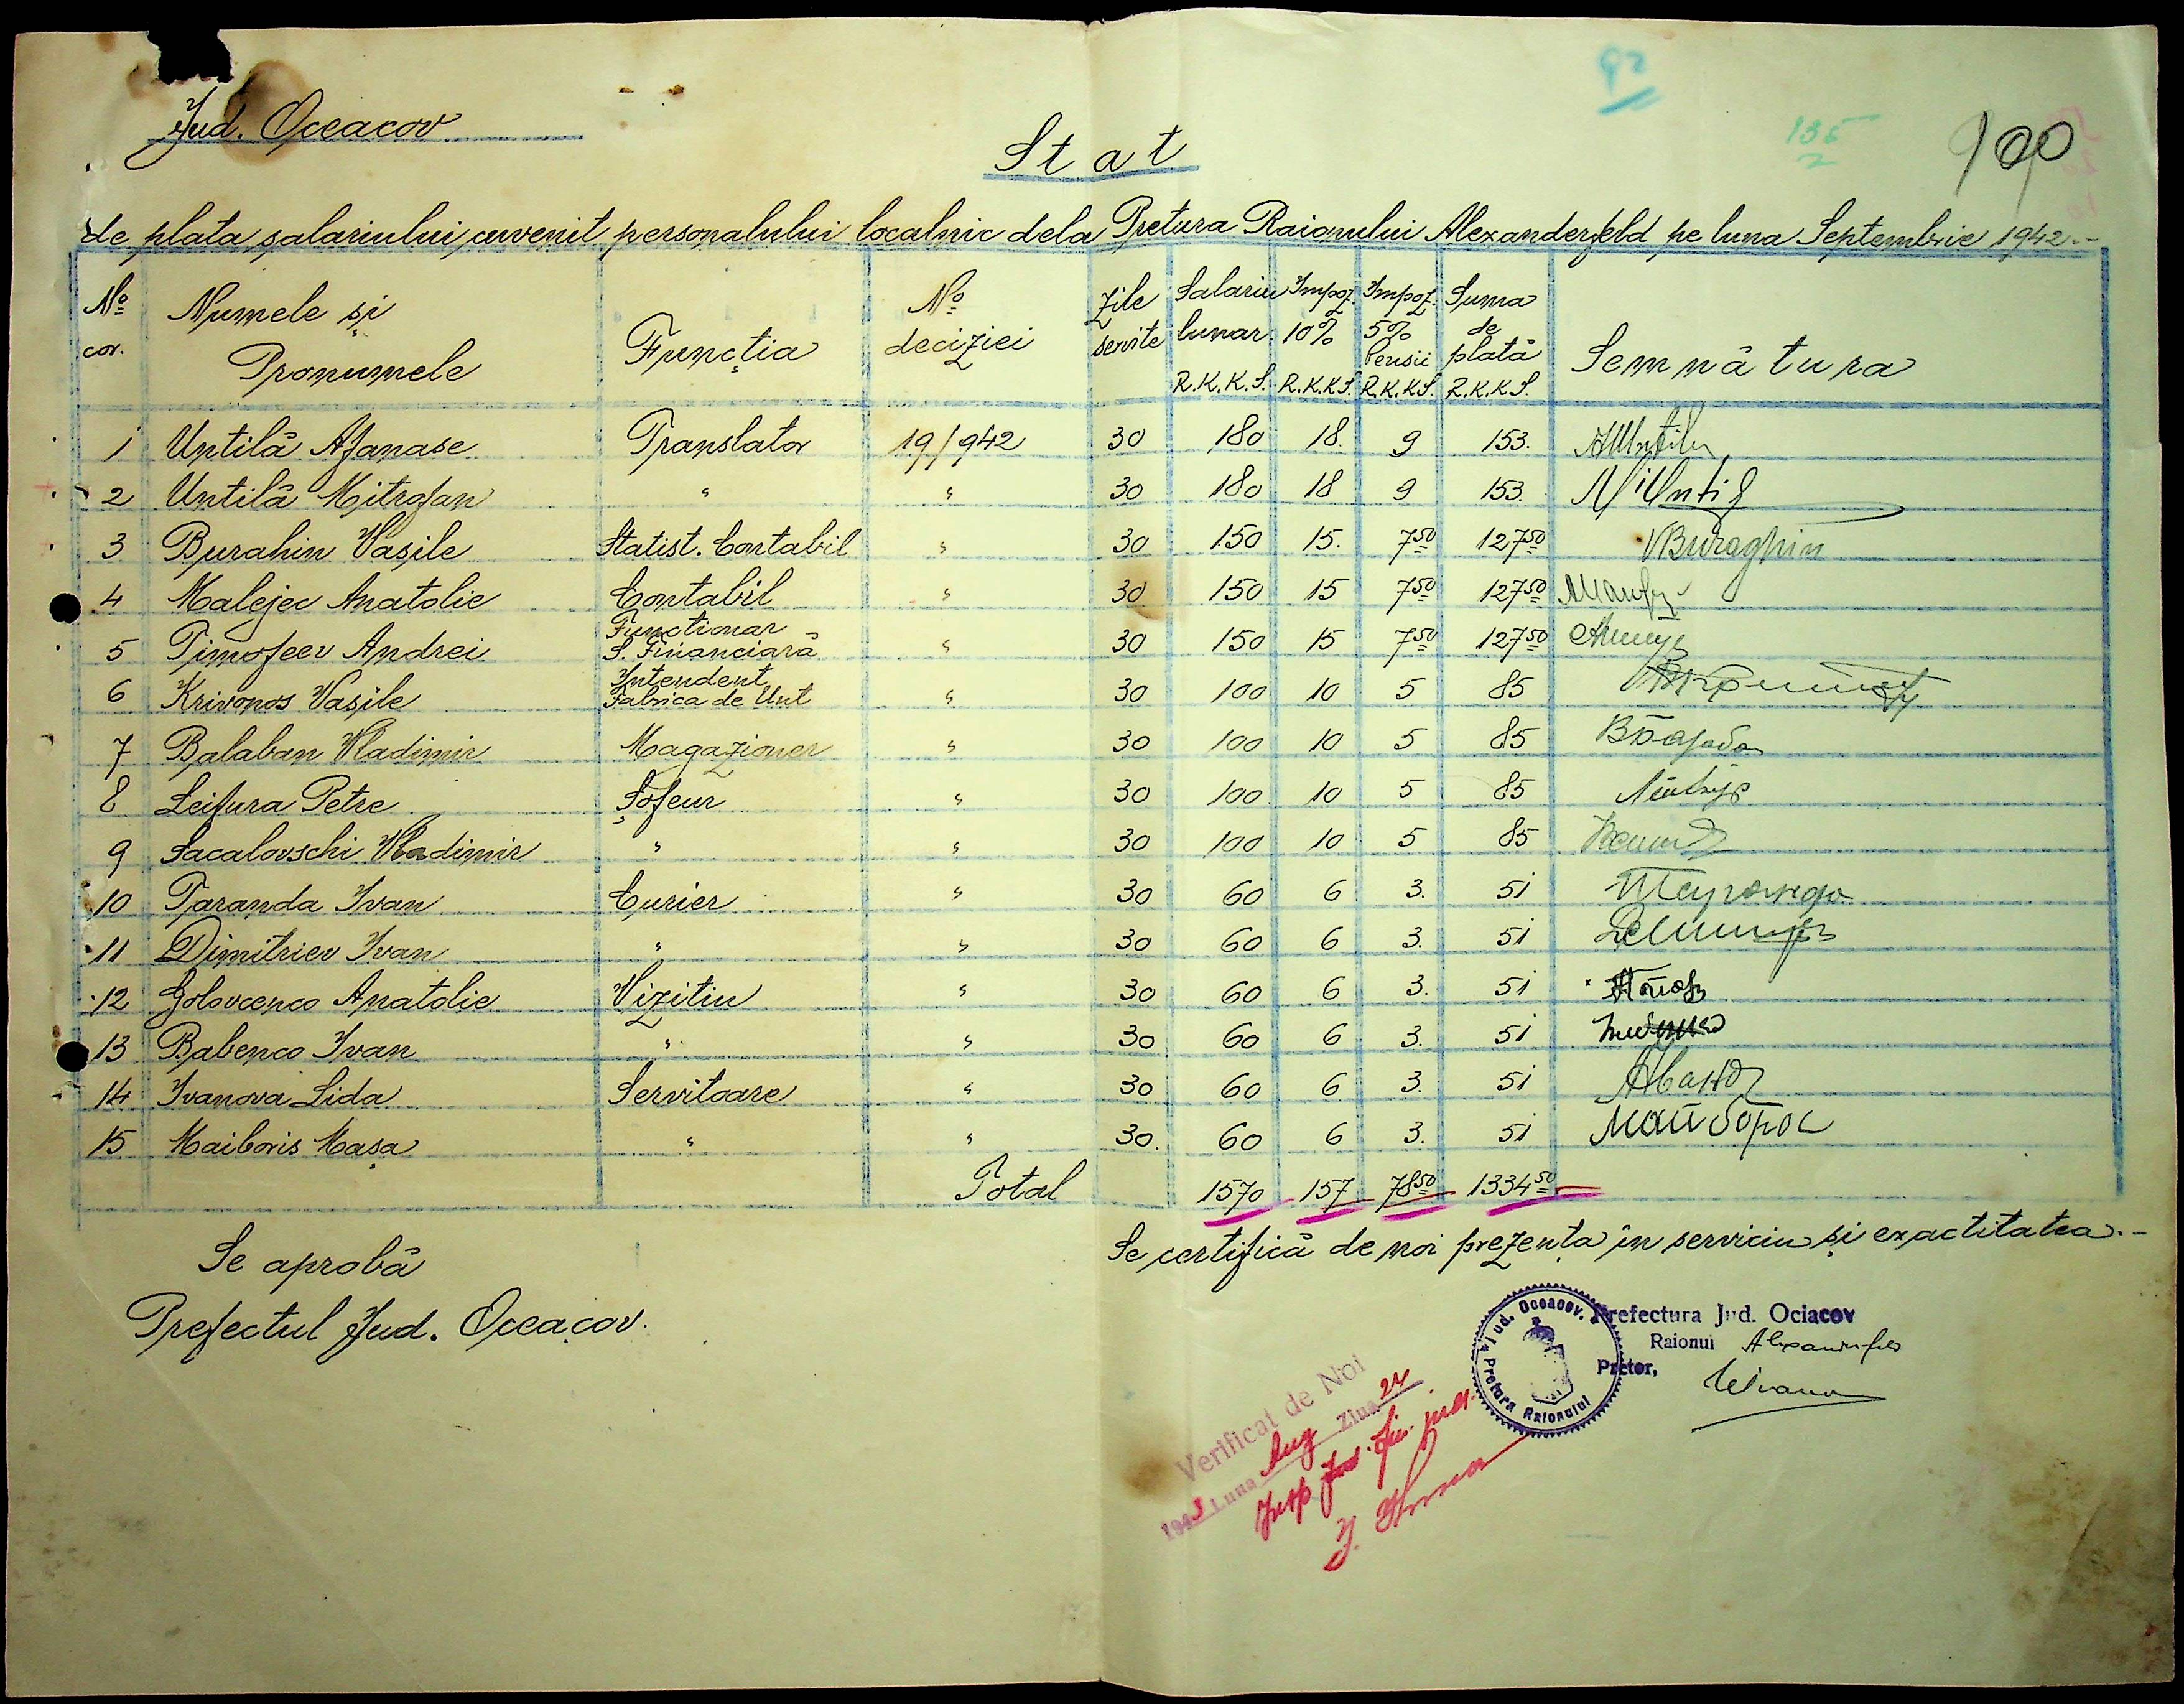 92
Jud. Oceacov
135
2
100
Stat
de plata salariului cuvenit personalului localnic dela Pretura Raionului Alexanderfeld pe luna Septembrie 1942.-
No cor. Numele și Pronumele Funcția No deciziei Zile servite Salariu lunar R.K.K.S. Impoz. 10% R.K.K.S. Impoz. 5% Pensii R.K.K.S. Suma de plată R.K.K.S. Semnătura
1 Untilă Afanase Translator 19/942 30 180 18. 9 153.
2 Untilă Mitrofan " " 30 180 18 9 153.
3 Burahin Vasile Statist. Contabil " 30 150 15. 7 50 127 50 VBuraghin
4 Malejec Anatolie Contabil " 30 150 15 7 50 127 50
5 Timofeev Andrei Functionar S. Financiară " 30 150 15 7 50 127 50
6 Krivonos Vasile Intendent Fabrica de Unt " 30 100 10 5 85
7 Balaban Vladimir Magazioner " 30 100 10 5 85
8 Leifura Petre Șofeur " 30 100 10 5 85
9 Sacalovschi Vladimir " " 30 100 10 5 85
10 Taranda Ivan Curier " 30 60 6 3. 51
11 Dimitriev Ivan " " 30 60 6 3. 51
12 Golovcenco Anatolie Vizitiu " 30 60 6 3. 51
13 Babenco Ivan " " 30 60 6 3. 51
14 Ivanova Lida Servitoare " 30 60 6 3. 51
15 Maiboris Mașa " " 30. 60 6 3. 51 Майборос
Total 1570 157 78 50 1334 50
Se aprobă
Prefectul Jud. Oceacov.
Se certifică de noi prezența in serviciu și exactitatea.-
Jud. Oceacov.
Pretura Raionului
Prefectura Jud. Ociacov
Raionul
Pretor,
Verificat de Noi
1943 Luna Aug Ziua 24